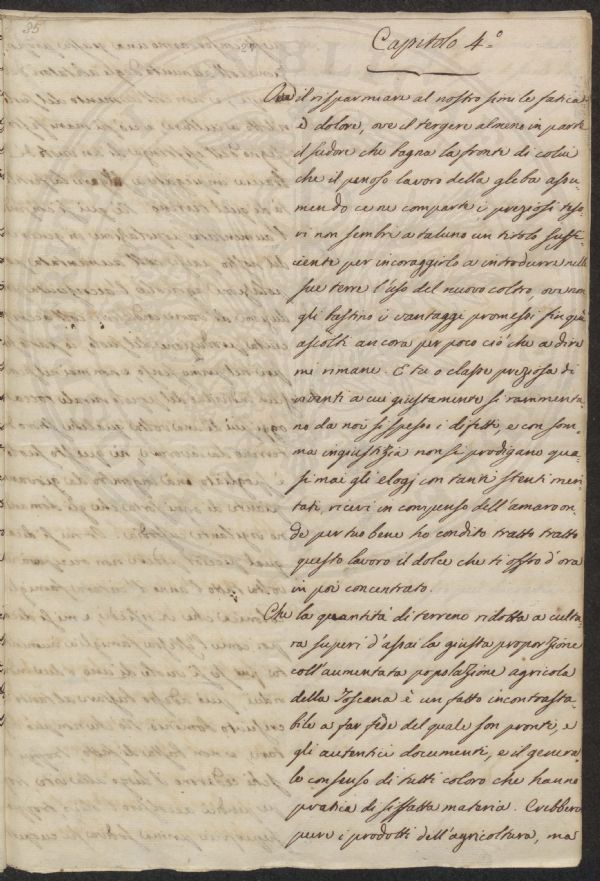 35
27
Capitolo 4.°
Ove il risparmiare al nostro simile fatica
e dolore, ove il tergere almeno in parte
il sudore che bagna la fronte di colui
che il penoso lavoro della gleba assu-
mendo ce ne comparte i preziosi teso-
ri non sembri a taluno un titolo suffi-
ciente per incoraggirlo a introdurre nelle
sue terre l'uso del nuovo coltro, ove non
gli bastino i vantaggi promessi fin quì
ascolti ancora per poco ciò che a dire
mi rimane. E tu o classe preziosa di
viventi a cui giustamente si rammenta-
no da noi sì spesso i difetti, e con som-
ma ingiustizia non si prodigano qua-
si mai gli elogj con tanti stenti meri-
tati, ricevi in compenso dell'amaro on-
de per tuo bene ho condito tratto tratto
questo lavoro il dolce che ti offro d'ora
in poi concentrato.
Che la quantità di terreno ridotta a cultu-
ra superi d'assai la giusta proporzione
coll'aumentata popolazione agricola
della Toscana è un fatto incontrasta-
bile a far fede del quale son pronti, e
gli autentici documenti, e il genera-
le consenso di tutti coloro che hanno
pratica di siffatta materia. Crebbero
pure i prodotti dell'agricoltura, ma